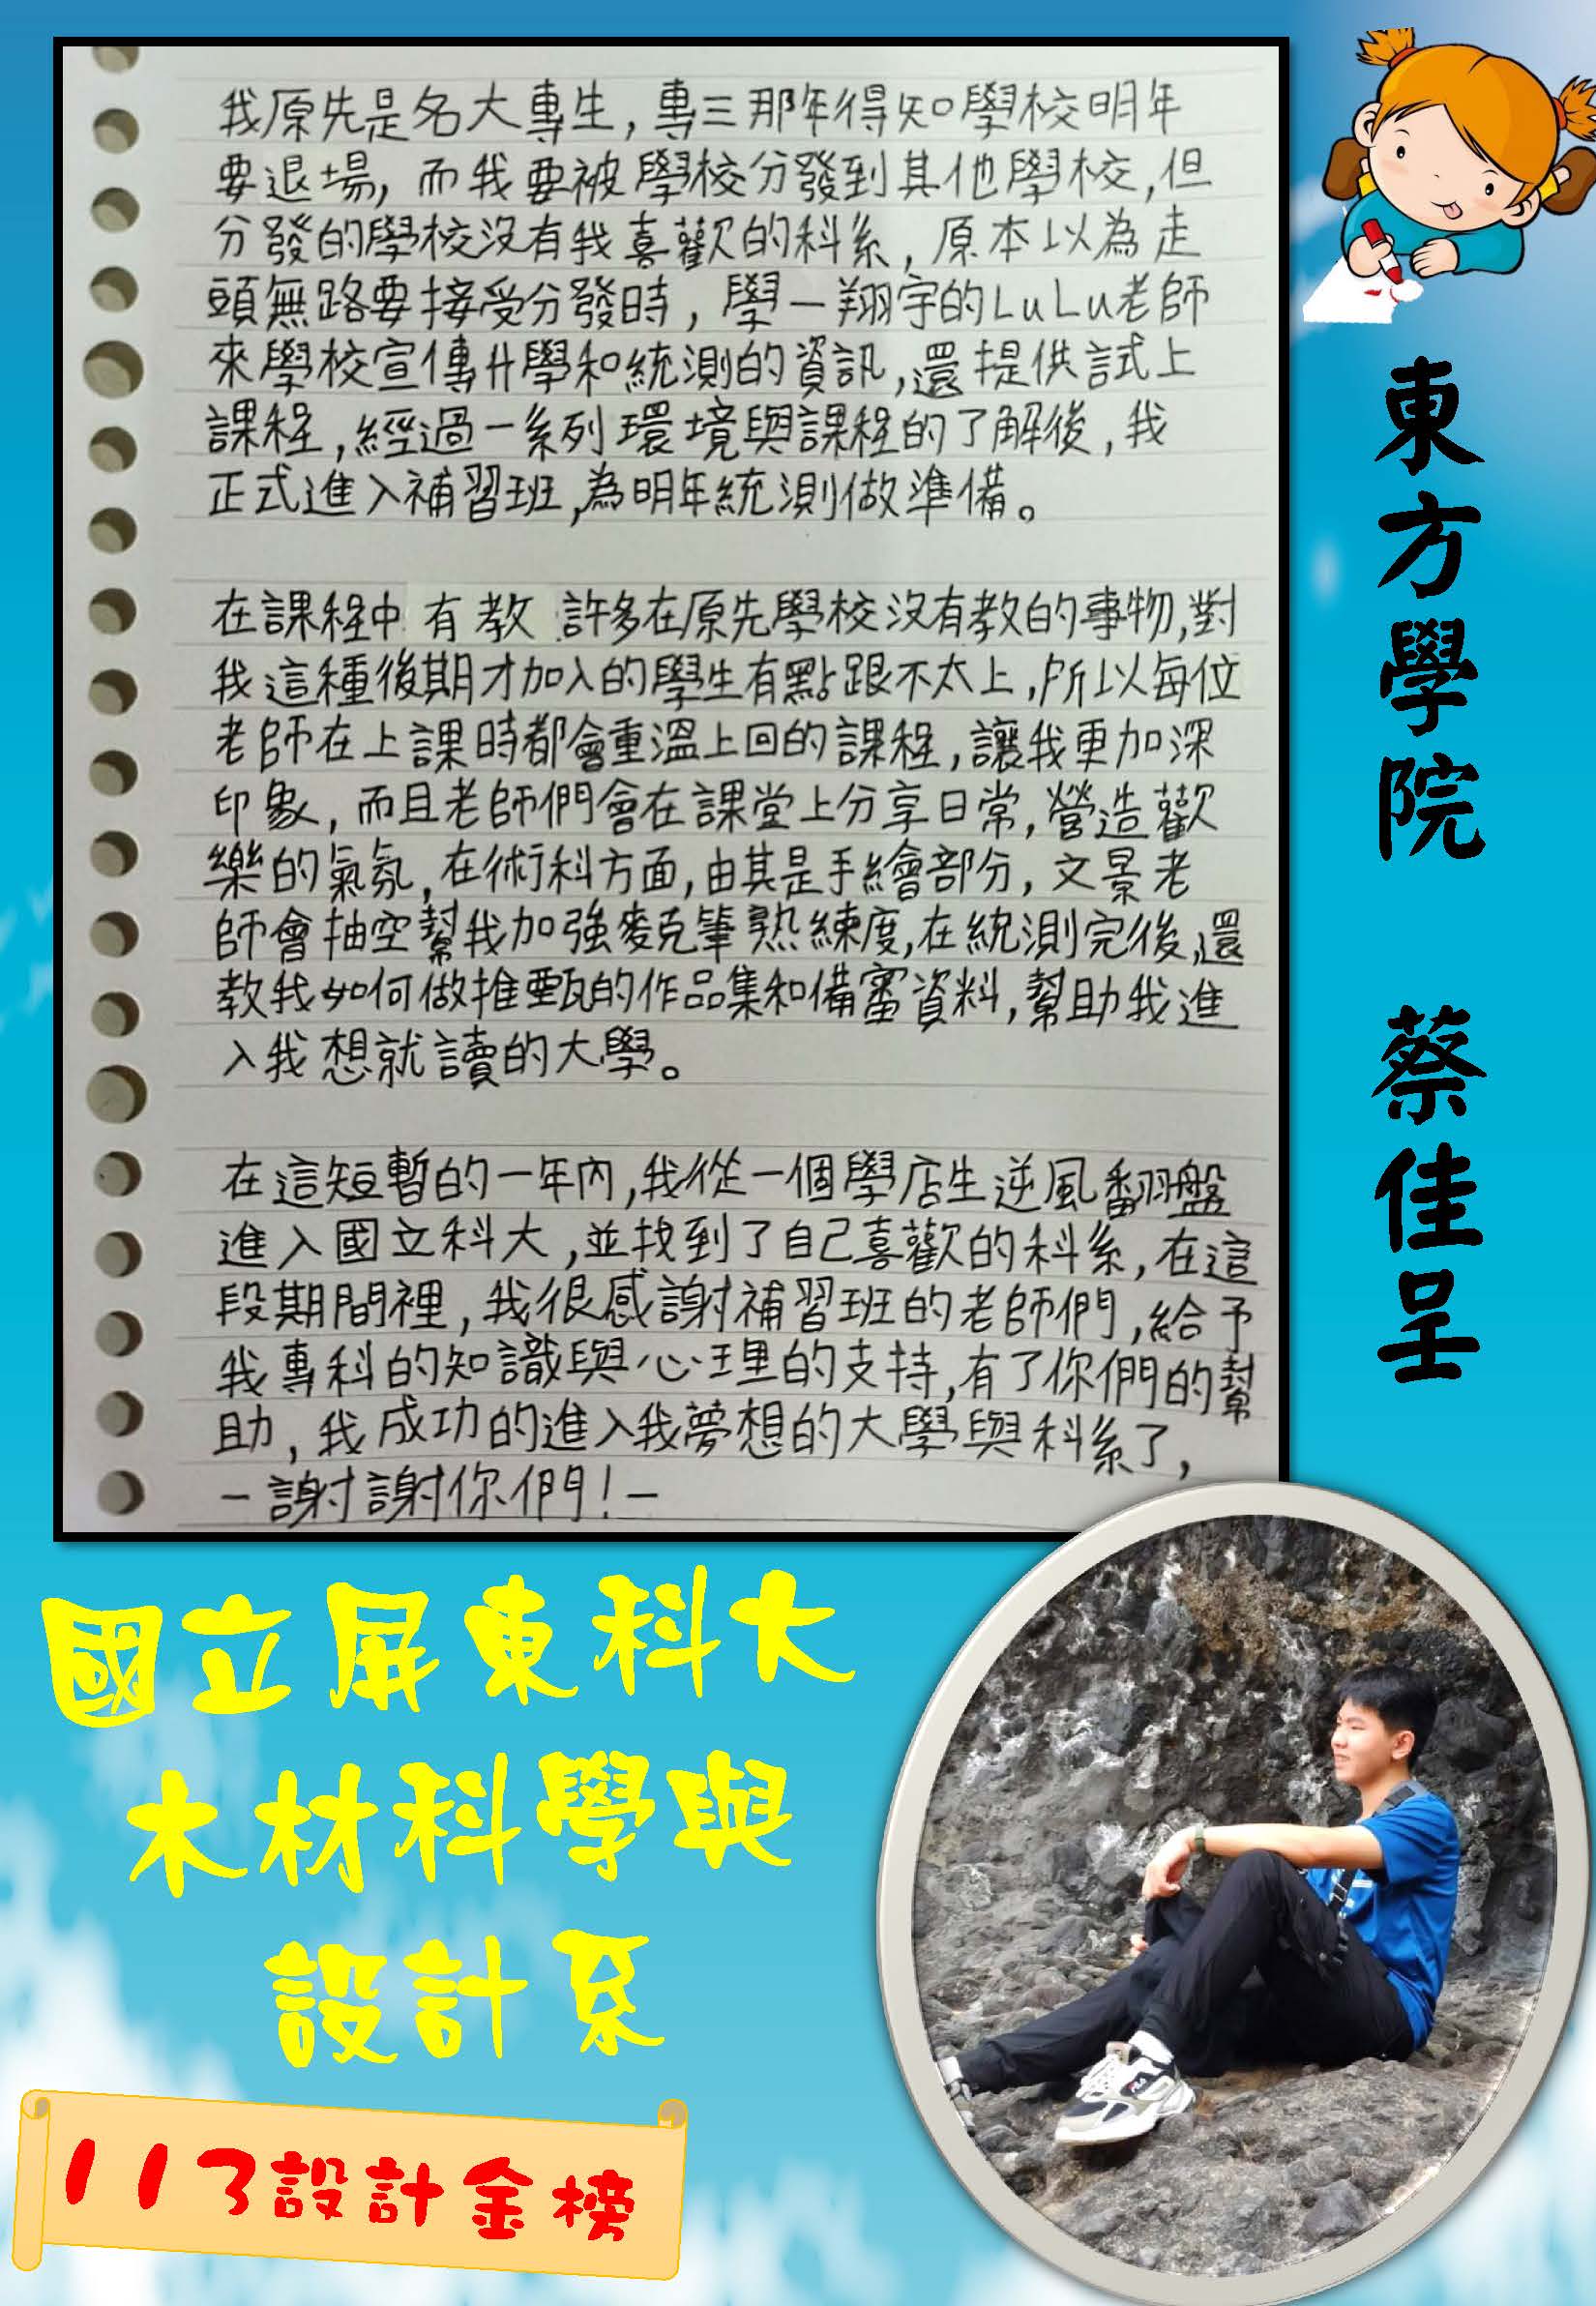 我原先是名大專生,專三那年得知學校明年
要退場,而我要被學校分發到其他學校,但
分發的學校沒有我喜歡的科系,原本以為走
頭無路要接受分發時,學一翔宇的LuLu老師
來學校宣傳升學和統測的資訊,還提供試上
課程,經過一系列環境與課程的了解後,我
正式進入補習班,為明年統測做準備。
在課程中有教許多在原先學校沒有教的事物,對
我這種後期才加入的學生有點跟不太上,所以每位
老師在上課時都會重溫上回的課程,讓我更加深
印象,而且老師們會在課堂上分享日常,營造歡
樂的氣氛,在術科方面,由其是手繪部分,文景老
師會抽空幫我加強麥克筆熟練度,在統測完後,還
教我如何做推甄的作品集和備審資料,幫助我進
入我想就讀的大學。
在這短暫的一年內,我從一個學店生逆風翻盤
進入國立科大,並找到了自己喜歡的科系,在這
段期間裡,我很感謝補習班的老師們,給予
我專科的知識與心理的支持,有了你們的幫
助,我成功的進入我夢想的大學與科系了,
-謝謝你們!-
東方學院 蔡佳呈
國立屏東科大
木材科學與
設計系
113設計金榜
FILA